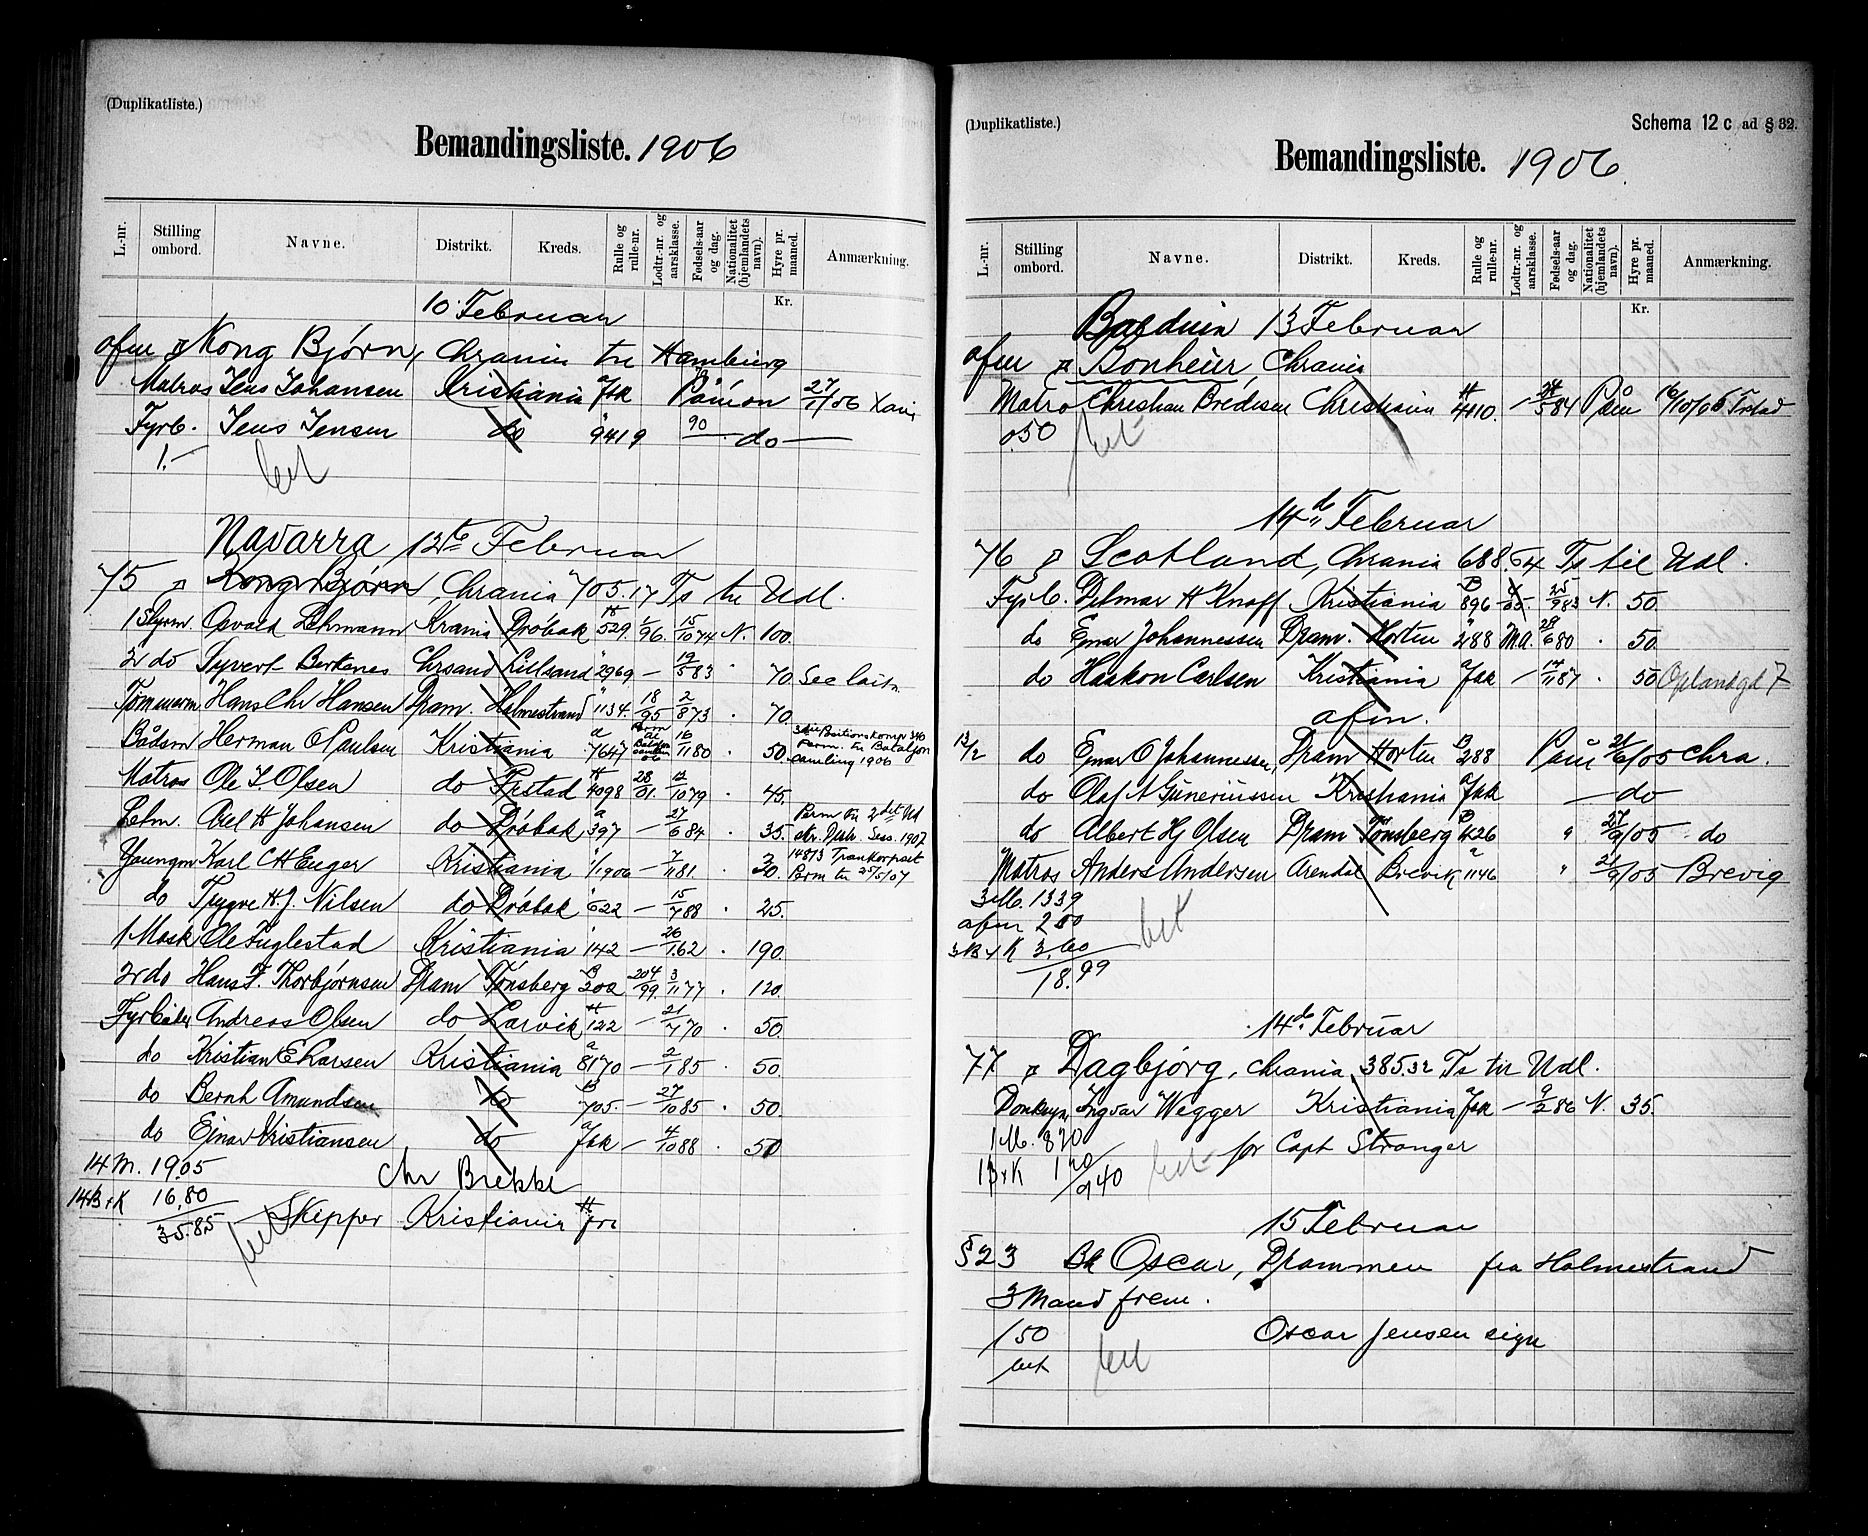 (Duplikatliste.)
Bemandingsliste. 1906
L.-nr. Stilling ombord. Navne. Distrikt. Kreds. Rulle og rulle-nr. Lodtr.-nr. og aarsklasse. Fødsels-aar og dag. Nationalitet (hjemlandets navn). Hyre pr. maaned. Anmærkning.
Kr.
10 Februar
afm Kong Bjørn, Chrania til Hamburg
Matros Jens Johansen Kristiania Jsk Påmøn 27/1/06 Xania
Fyrb. Jens Jensen do 9419 90 do
1.-
bet
Navarra 12te Februar
75 Kong Bjørn, Chrania 705.17 Ts til Udl.
1 Styrm Osvald Lehmann Krania Drøbak 529 1/96 15/10 74 N. 100.
2 do Syvert Berkenes Chrsand Lillesand 2969 — 19/5 83 70
Tømmerm Hans Chr Hansen Dram. Holmestrand 1134. 18/95 2/8 73 70.
Bådsm Herman O Paulsen Kristiania 7647 16/11 80 50.
Matros Ole L Olsen do Frstad 4098 28/01. 12/10 79 45.
Letm. Axel H Johansen do Drøbak 397 — 27/6 84 35.
Youngm Karl C H Euger Kristiania 1/1906 — 7/11 81 30.
do Trygve H. J. Nilsen do Drøbak 622 — 15/7 88 25.
1 Mask Ole Fuglestad Kristiania 142 — 26/1 62 190.
2 do Hans F. Thorbjørnsen Dram Tønsberg 302 204/99. 3/11 77 120.
Fyrbøder Andreas Olsen do Larvik 122 — 21/7 70 50.
do Kristian E Larsen Kristiania 8170 — 2/1 85 50.
do Bernh Amundsen do 705. — 27/10 85 50.
do Ejnar Kristiansen do Jsk — 4/10 88 50
14 M. 19.05 Chr Brekke
14 B + K 16.80 Skipper Kristiania
35.85
bet
(Duplikatliste.) Schema 12 c ad § 32.
Bemandingsliste. 1906.
L.-nr. Stilling ombord. Navne. Distrikt. Kreds. Rulle og rulle-nr. Lodtr.-nr. og aarsklasse. Fødsels-aar og dag. Nationalitet (hjemlandets navn). Hyre pr. maaned. Anmærkning.
Kr.
Balduin 13 Februar
afm Bonheur, Chrania
Matro Christian Bredesen Christiania 4410. — 24/5 84 Påm 16/10/05 Frstad
0.50 bet
14de Februar
76 Scotland, Chrania 688.64 Ts til Udl.
Fyrb. Delmar H Knoff Kristiania 896 25/9 83 N. 50.
do Ejnar Johannessen Dram. Horten 288 M.A. 28/6 80 50.
do Haakon Carlsen Kristiania Jsk — 14/11 87 50 Oplandgd 7
afm.
13/2 do Ejnar O Johannessen, Dram Horten 288 Påm 21/6/05 Chra.
do Olaf A Guneriussen Kristiania Jsk — do
do Albert Hj Olsen Dram Tønsberg 426 " 27/9/05 do
Matros Anders Andersen Arendal Brevik 1146 " 21/9/05 Brevig
3 M. 1339
afm 2.00
3 B + K 3.60
18.99
bet
14de Februar
77 Dagbjørg, Chrania 385.32 Ts til Udl.
Donkeym Ingvar Wegger Kristiania Jsk — 9/2 86 N. 35.
1 M. 820 for Capt Stranger
1 B + K 120
940
bet
15 Februar
§ 23 Bk Oscar, Drammen fra Holmestrand
3 Mand frem.
150 Oscar Jensen sign
bet bet